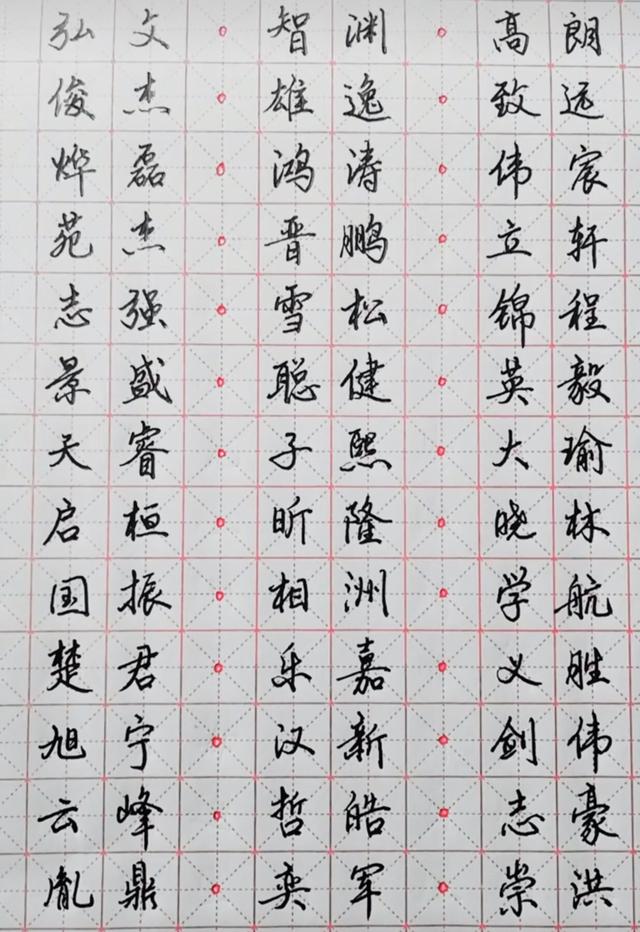 弘文。智渊。高朗
俊杰。雄逸。致远
烨磊。鸿涛。伟宸
苑杰。晋鹏。立轩
志强。雪松。锦程
景盛。聪健。英毅
天睿。子熙。大瑜
启桓。昕隆。晓林
国振。相洲。学航
楚君。乐嘉。义胜
旭宁。汉新。剑伟
云峰。哲皓。志豪
胤鼎。奕军。崇洪